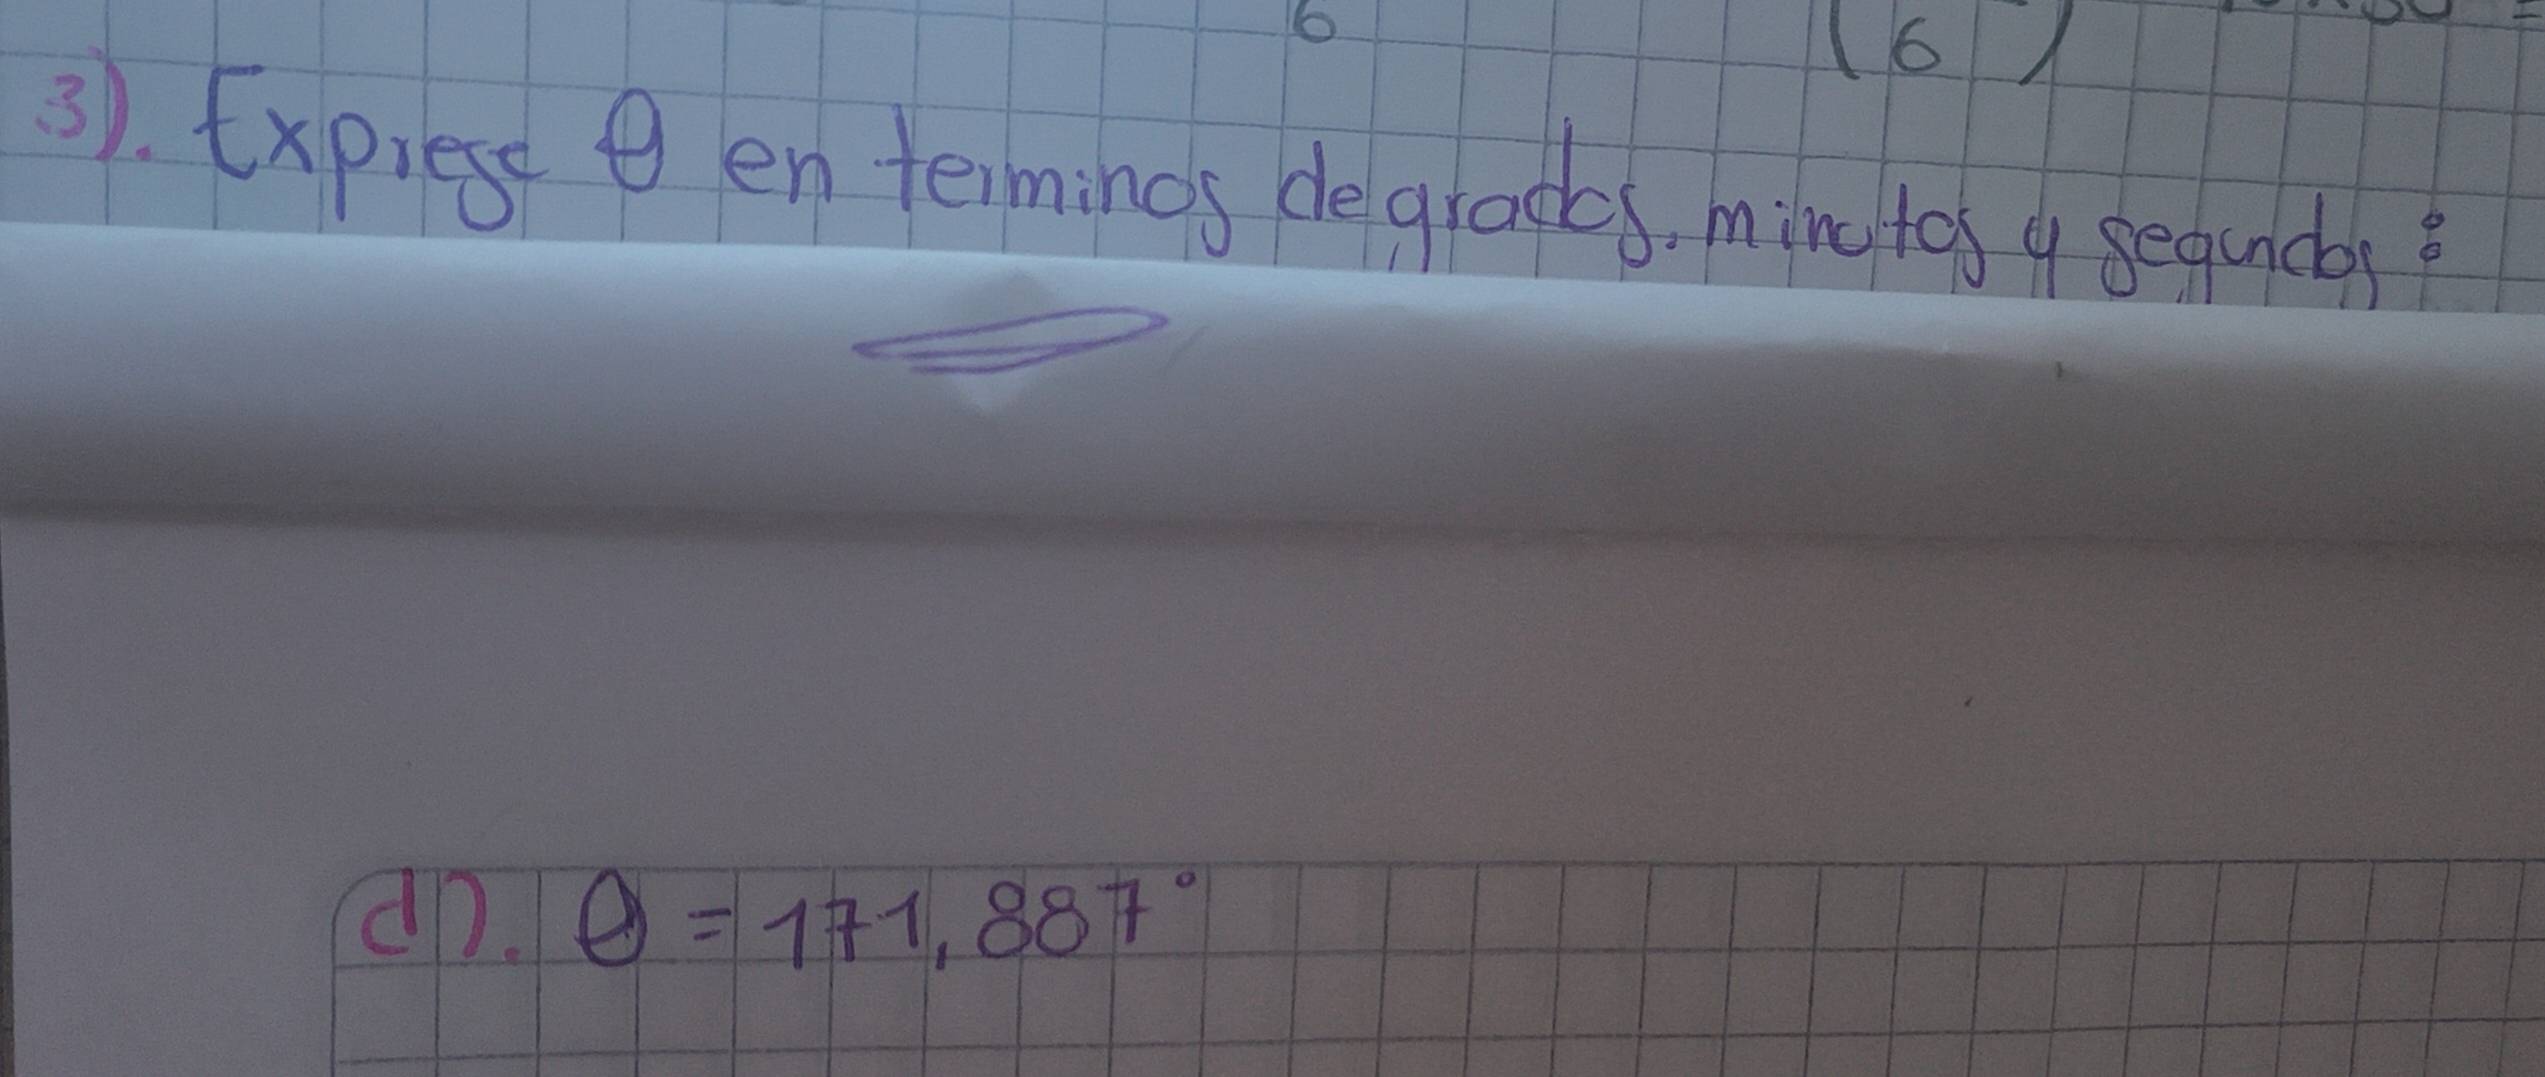 6 (6)
3). Exprese θ en terminos de grados, minutos y segundos:
d). θ = 171,887°